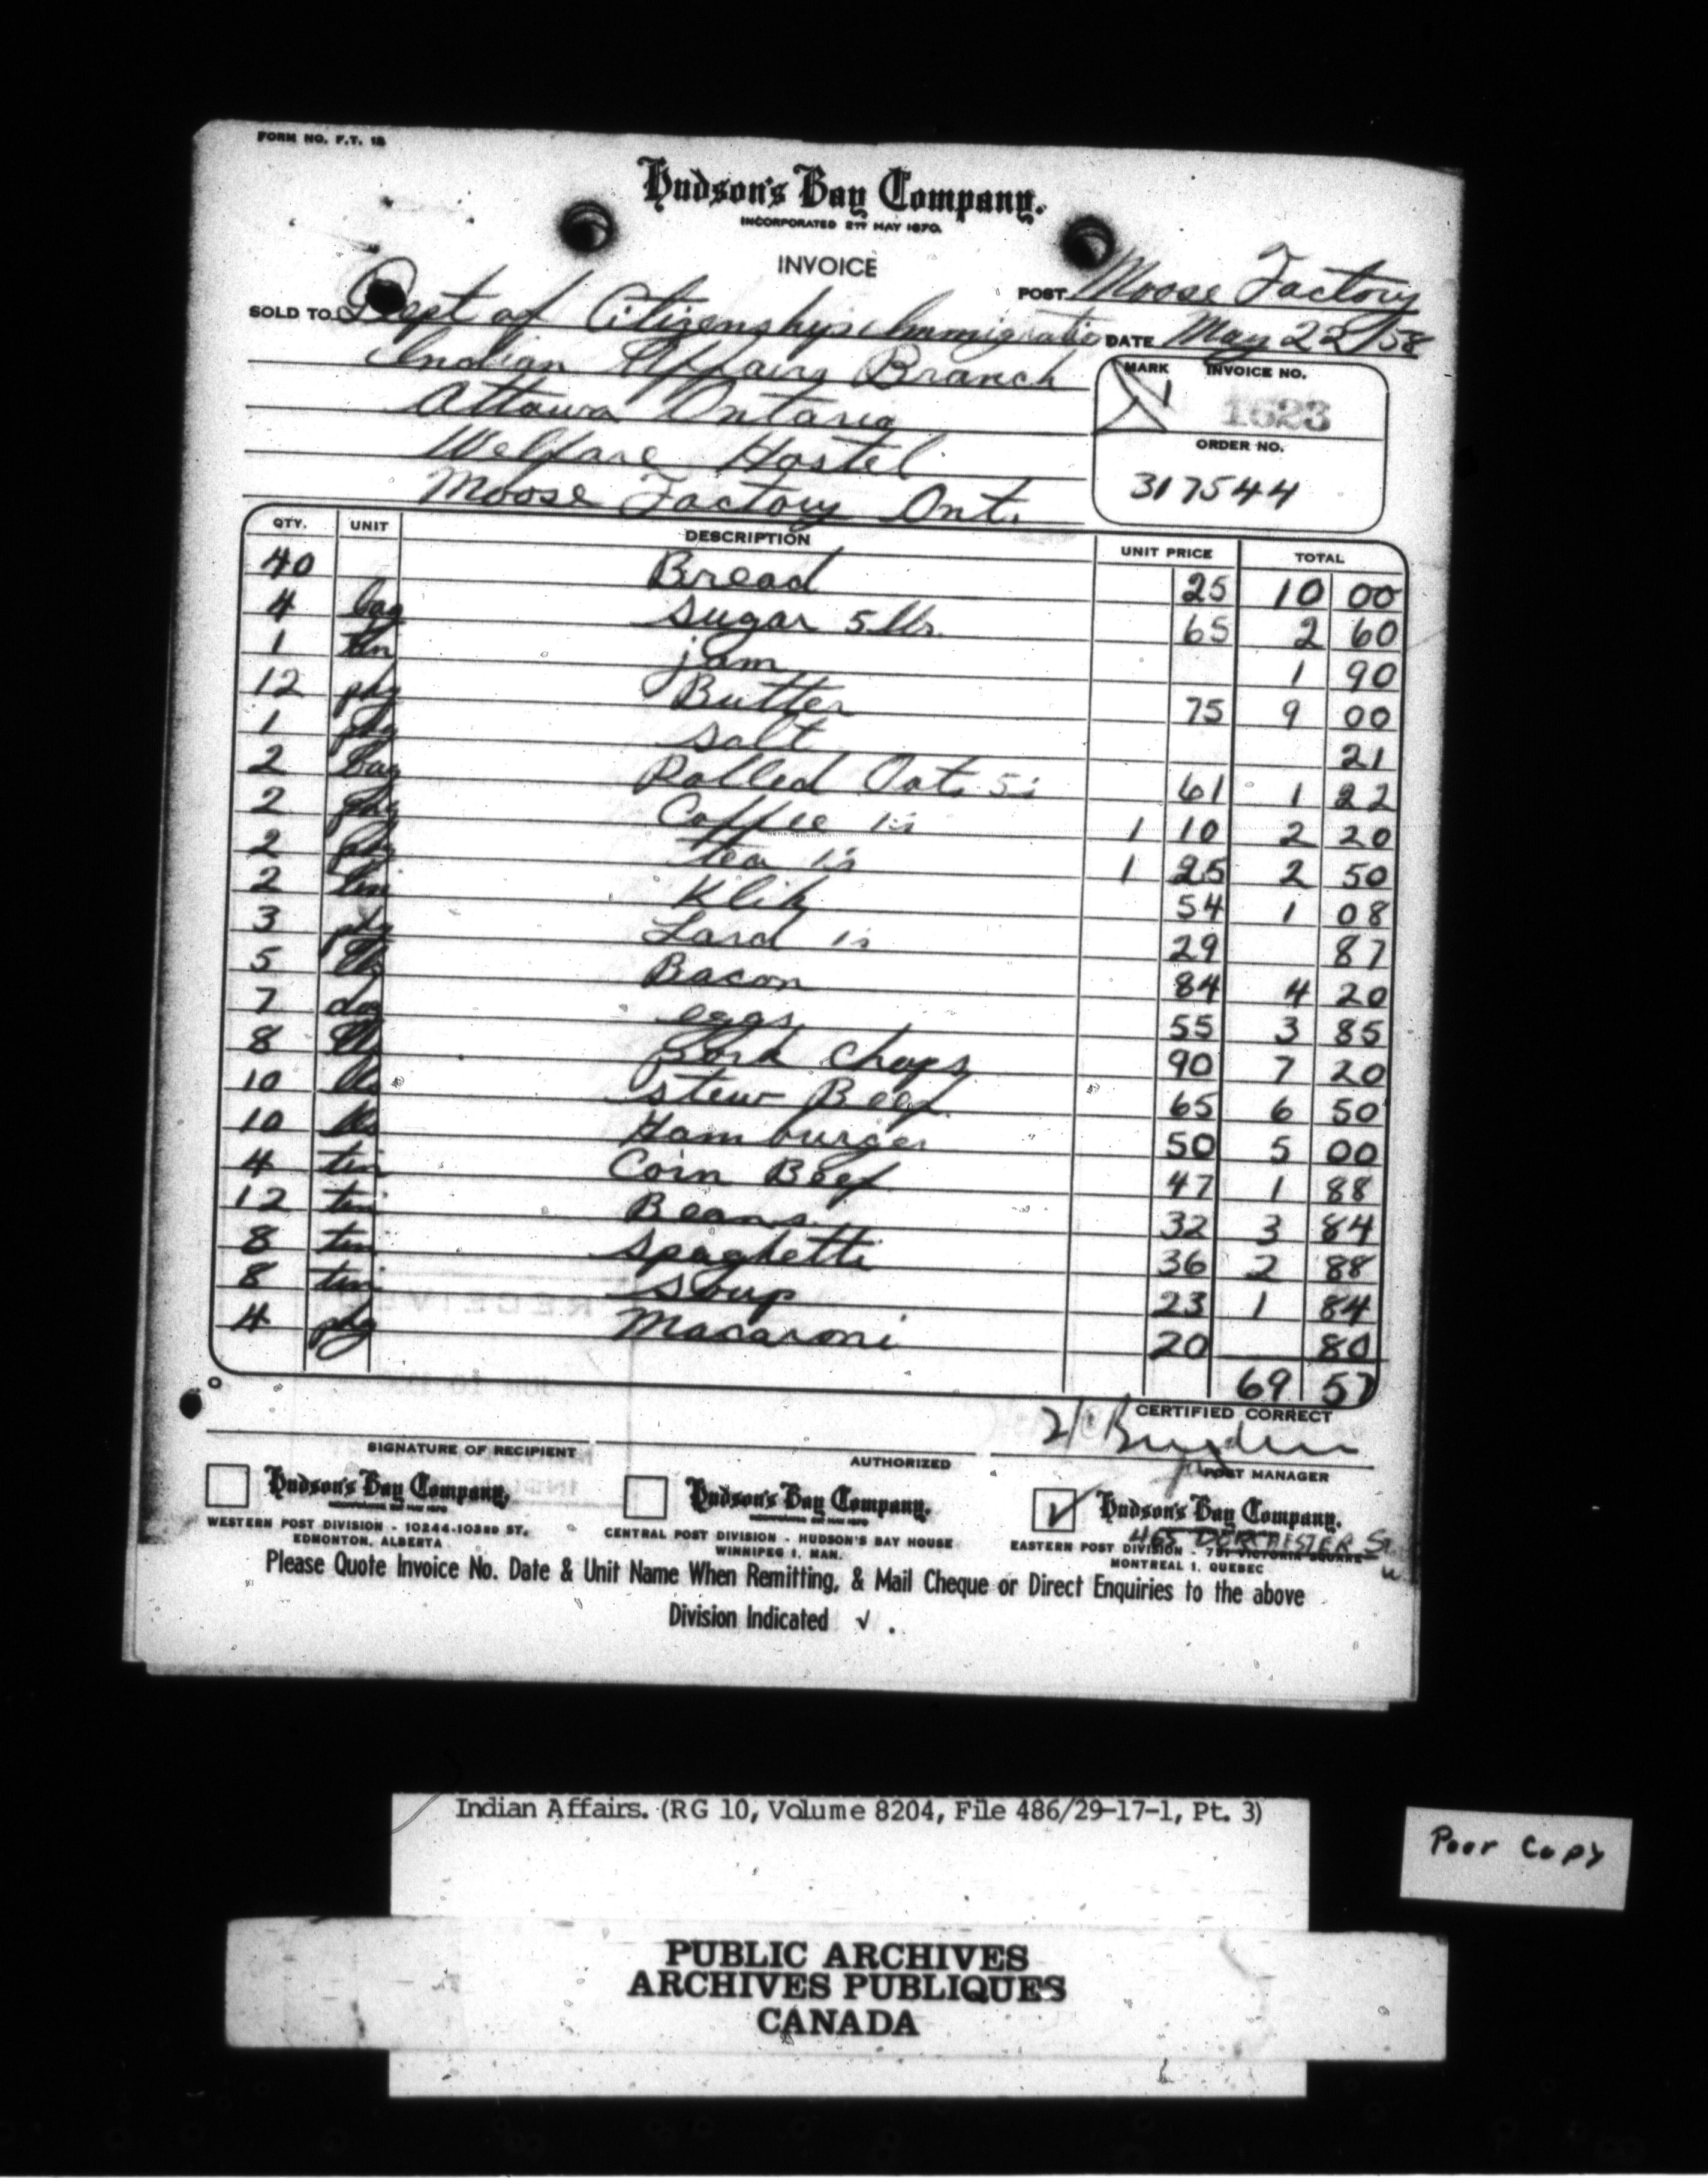 FORM NO. F.T. 18
Hudson's Bay Company.
INCORPORATED 2ND MAY 1670.
INVOICE
POST Moose Factory
SOLD TO Dept of Citizenship & Immigration DATE May 22/58
Indian Affairs Branch
Ottawa Ontario
Welfare Hostel
Moose Factory Ont.
MARK INVOICE NO.
1623
ORDER NO.
317544
QTY. UNIT DESCRIPTION UNIT PRICE TOTAL
40 Bread 25 10 00
4 bag Sugar 5 lbs. 65 2 60
1 tin jam 1 90
12 pkg Butter 75 9 00
1 pkg Salt 21
2 bag Rolled Oats 5s 61 1 22
2 pkg Coffee 1s 1 10 2 20
2 pkg tea 1s 1 25 2 50
2 tin Klik 54 1 08
3 pkg Lard 1s 29 87
5 lbs Bacon 84 4 20
7 doz eggs 55 3 85
8 lbs pork chops 90 7 20
10 lbs stew Beef 65 6 50
10 lbs Hamburger 50 5 00
4 tin Corn Beef 47 1 88
12 tin Beans 32 3 84
8 tin Spaghetti 36 2 88
8 tin Soup 23 1 84
4 pkg Macaroni 20 80
69 57
CERTIFIED CORRECT
SIGNATURE OF RECIPIENT AUTHORIZED POST MANAGER
Hudson's Bay Company.
WESTERN POST DIVISION - 10244-103RD ST.
EDMONTON, ALBERTA
Hudson's Bay Company.
CENTRAL POST DIVISION - HUDSON'S BAY HOUSE
WINNIPEG 1, MAN.
✓ Hudson's Bay Company.
465 DORCHESTER St. W.
EASTERN POST DIVISION - 751 VICTORIA SQUARE
MONTREAL 1, QUEBEC
Please Quote Invoice No. Date & Unit Name When Remitting, & Mail Cheque or Direct Enquiries to the above
Division Indicated √ .
Indian Affairs. (RG 10, Volume 8204, File 486/29-17-1, Pt. 3)
Poor Copy
PUBLIC ARCHIVES
ARCHIVES PUBLIQUES
CANADA